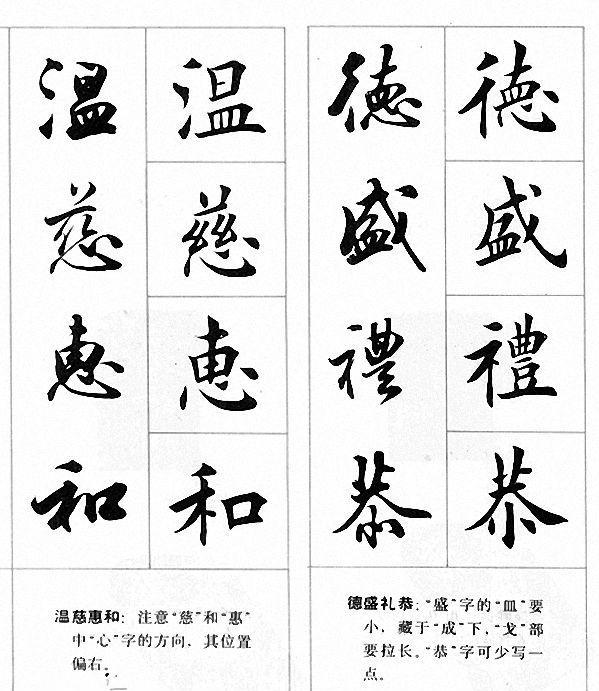 德盛禮恭
德盛禮恭
德盛礼恭：“盛”字的“皿”要
小，藏于“成”下，“戈”部
要拉长。“恭”字可少写一
点。
温慈惠和
温慈惠和
温慈惠和：注意“慈”和“惠”
中“心”字的方向，其位置
偏右。